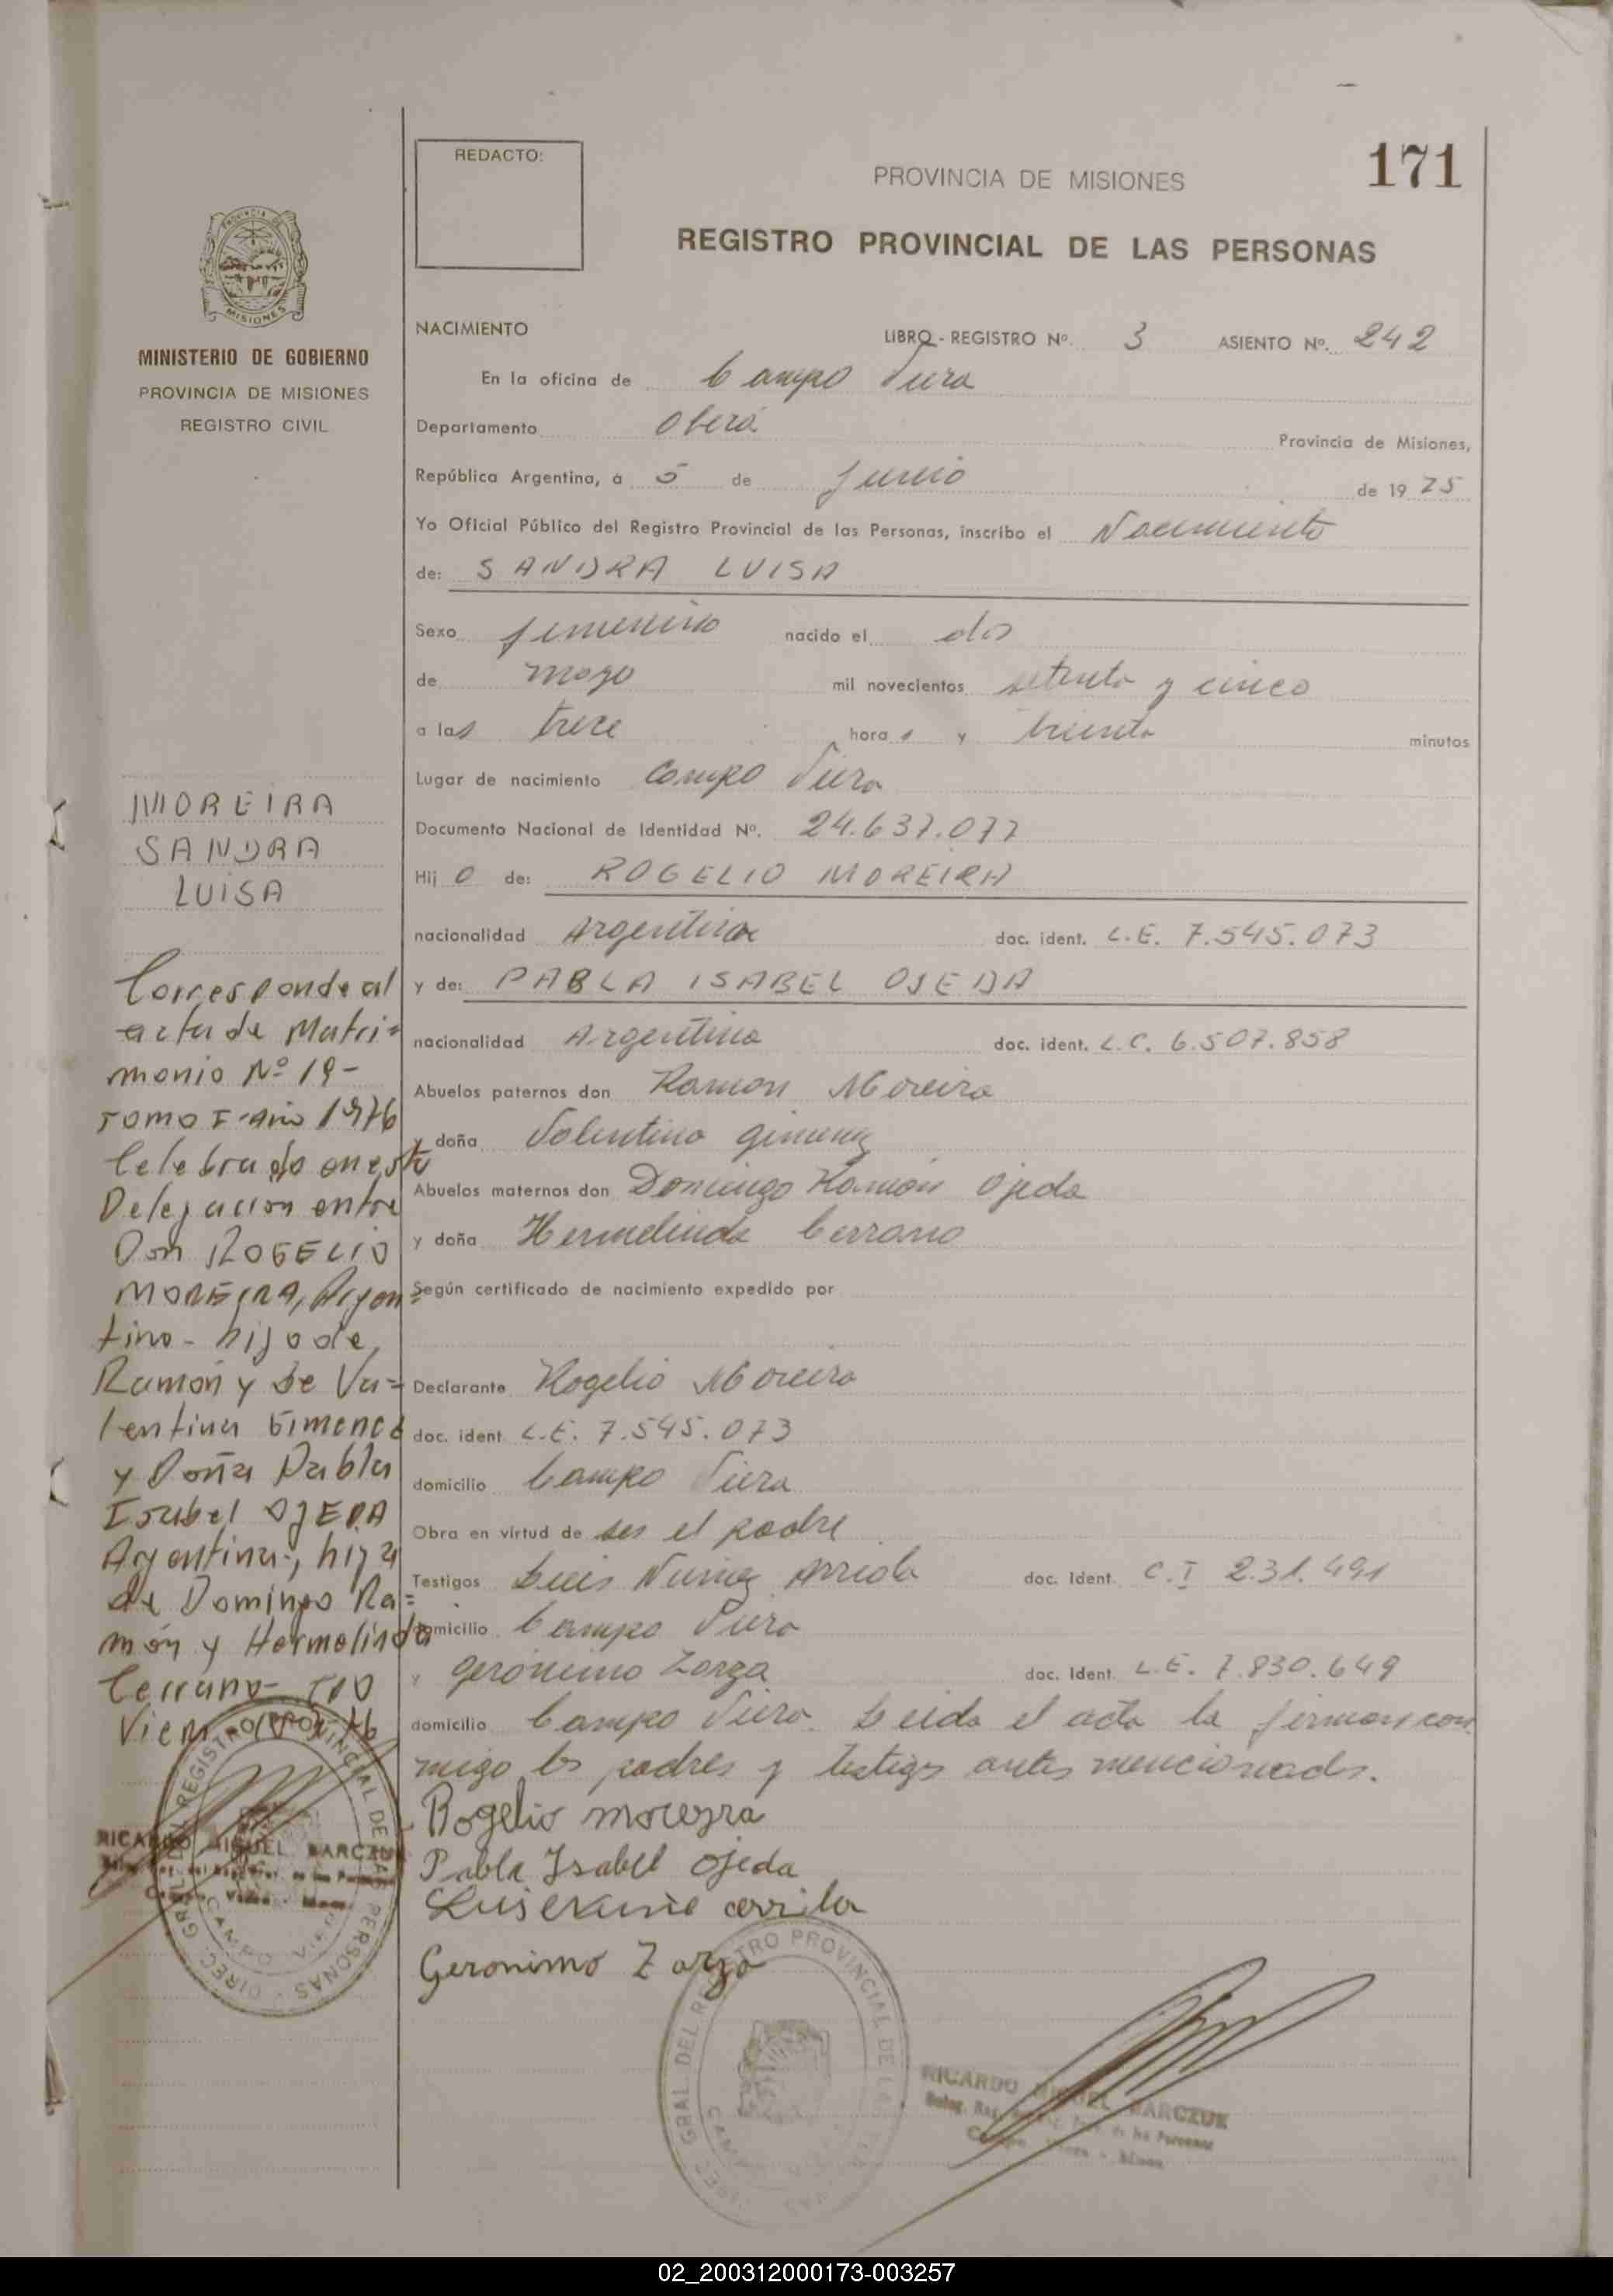 171
REDACTO:
PROVINCIA DE MISIONES
REGISTRO PROVINCIAL DE LAS PERSONAS
PROVINCIA DE
MISIONES
MINISTERIO DE GOBIERNO
PROVINCIA DE MISIONES
REGISTRO CIVIL
NACIMIENTO LIBRO - REGISTRO Nº. 3 ASIENTO Nº. 242
En la oficina de Campo Viera
Departamento Oberá Provincia de Misiones,
República Argentina, a 5 de Junio de 19 75
Yo Oficial Público del Registro Provincial de las Personas, inscribo el Nacimiento
de: SANDRA LUISA
Sexo femenino nacido el dos
de mayo mil novecientos setenta y cinco
a las trece hora s y treinta minutos
Lugar de nacimiento Campo Viera
Documento Nacional de Identidad Nº. 24.637.077
Hij a de: ROGELIO MOREIRA
nacionalidad Argentina doc. ident. L.E. 7.545.073
y de: PABLA ISABEL OJEDA
nacionalidad Argentina doc. ident. L.C. 6.507.858
Abuelos paternos don Ramon Moreira
y doña Valentina Gimenez
Abuelos maternos don Domingo Ramón Ojeda
y doña Hermelinda Cerrano
Según certificado de nacimiento expedido por
Declarante Rogelio Moreira
doc. ident L.E. 7.545.073
domicilio Campo Viera
Obra en virtud de ser el padre
Testigos Luis Nuñez Arriola doc. Ident. C.I 231.491
domicilio Campo Viera
y Gerónimo Zarza doc. Ident. L.E. 7.830.649
domicilio Campo Viera. Leida el acta la firman con
migo los padres y testigos antes mencionados.
Rogelio moreyra
Pabla Isabel Ojeda
Geronimo Zarza
MOREIRA
SANDRA
LUISA
Corresponde al
acta de Matri=
monio Nº 19-
Tomo I-Año 1976
Celebrado en esta
Delegacion entre
Don ROGELIO
MOREIRA, Argen=
tino- hijo de
Ramón y de Va=
lentina Gimenez
y Doña Pabla
Isabel OJEDA
Argentina-, hija
de Domingo Ra=
món y Hermelinda
Cerrano-
RICARDO MIGUEL BARCZUK
Campo Viera
DIREC. GRAL. DEL REGISTRO PROVINCIAL DE LAS PERSONAS
CAMPO VIERA
DIREC. GRAL. DEL REGISTRO PROVINCIAL DE LAS
RICARDO MIGUEL BARCZUK
Campo Viera - Mnes.
02_200312000173-003257